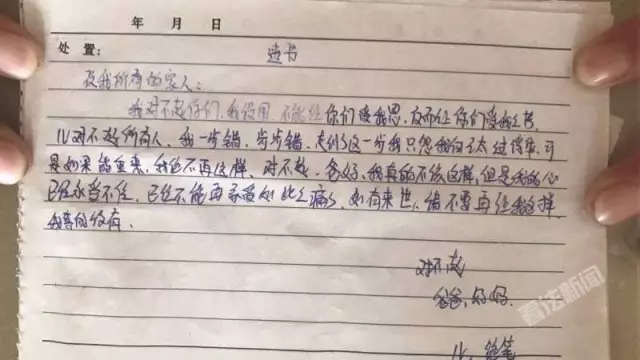 年 月 日
处置： 遗书
致我所有的家人：
我对不起你们，我没用，不能让你们
对不起所有人，我一步错，步步错，走到了这一步我只怨我自己太过
是如果能重来，我绝不再这样，对不起，爸妈，我真的不该这样，但是我的心
已经承当不住，已经不能再承受如此之痛了，如有来世，请不要再让我这样
我真的没有
对不起
爸爸，妈妈
儿，绝笔
看法新闻